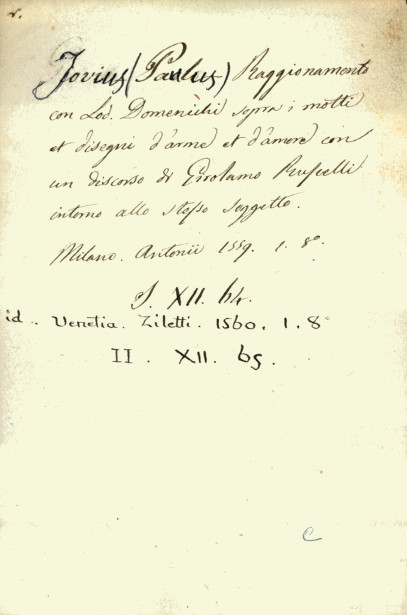 r.
Jovius (Paulus) Raggionamento
con Lod. Domenichi sopra i motti
et disegni d'arme et d'amore con
un discorso di Girolamo Ruscelli
intorno allo stesso soggetto.
Milano. Antonii 1559. 1. 8°.
I. XII. 64.
id. Venetia. Ziletti. 1560. 1. 8°
II. XII. 65.
C